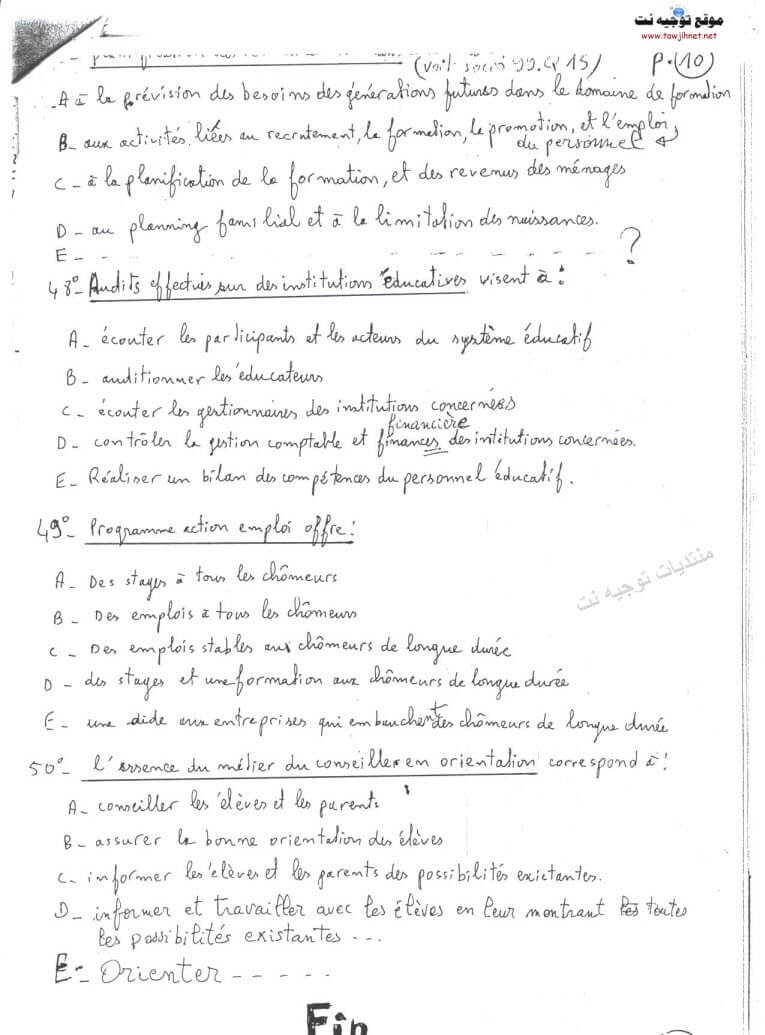 موقع توجيه نت
www.tawjihnet.net
(voir socio 99.Q 15) P.(10)
A à la prévision des besoins des générations futures dans le domaine de formation
B- aux activités liées au recrutement, la formation, la promotion, et l'emploi
du personnel
C- à la planification de la formation, et des revenus des ménages
D- au planning familial et à la limitation des nuissances.
E- - - - - - - - - - ?
48°- Audits effectués sur des institutions éducatives visent à :
A- écouter les participants et les acteurs du système éducatif
B- auditionner les éducateurs
C- écouter les gestionnaires des institutions concernées
financière
D- contrôler la gestion comptable et finances des intitutions concernées.
E- Réaliser un bilan des compétences du personnel éducatif.
49°- Programme action emploi offre :
منتديات توجيه نت
A- Des stages à tous les chômeurs
B- Des emplois à tous les chômeurs
C- Des emplois stables aux chômeurs de longue durée
D- des stages et une formation aux chômeurs de longue durée
E- une dide aux entreprises qui embauchent des chômeurs de longue durée
50°- l'essence du métier du conseiller en orientation correspond à :
A- conseiller les élèves et les parents
B- assurer la bonne orientation des élèves
C- informer les élèves et les parents des possibilités exictantes.
D- informer et travailler avec les élèves en leur montrant les toutes
les possibilités existantes ...
E- Orienter - - - - -
Fin